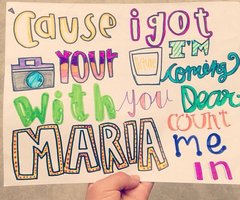 Cause i got
YOUR I'M
coming
With you Dear
COUNT
MARIA me
in